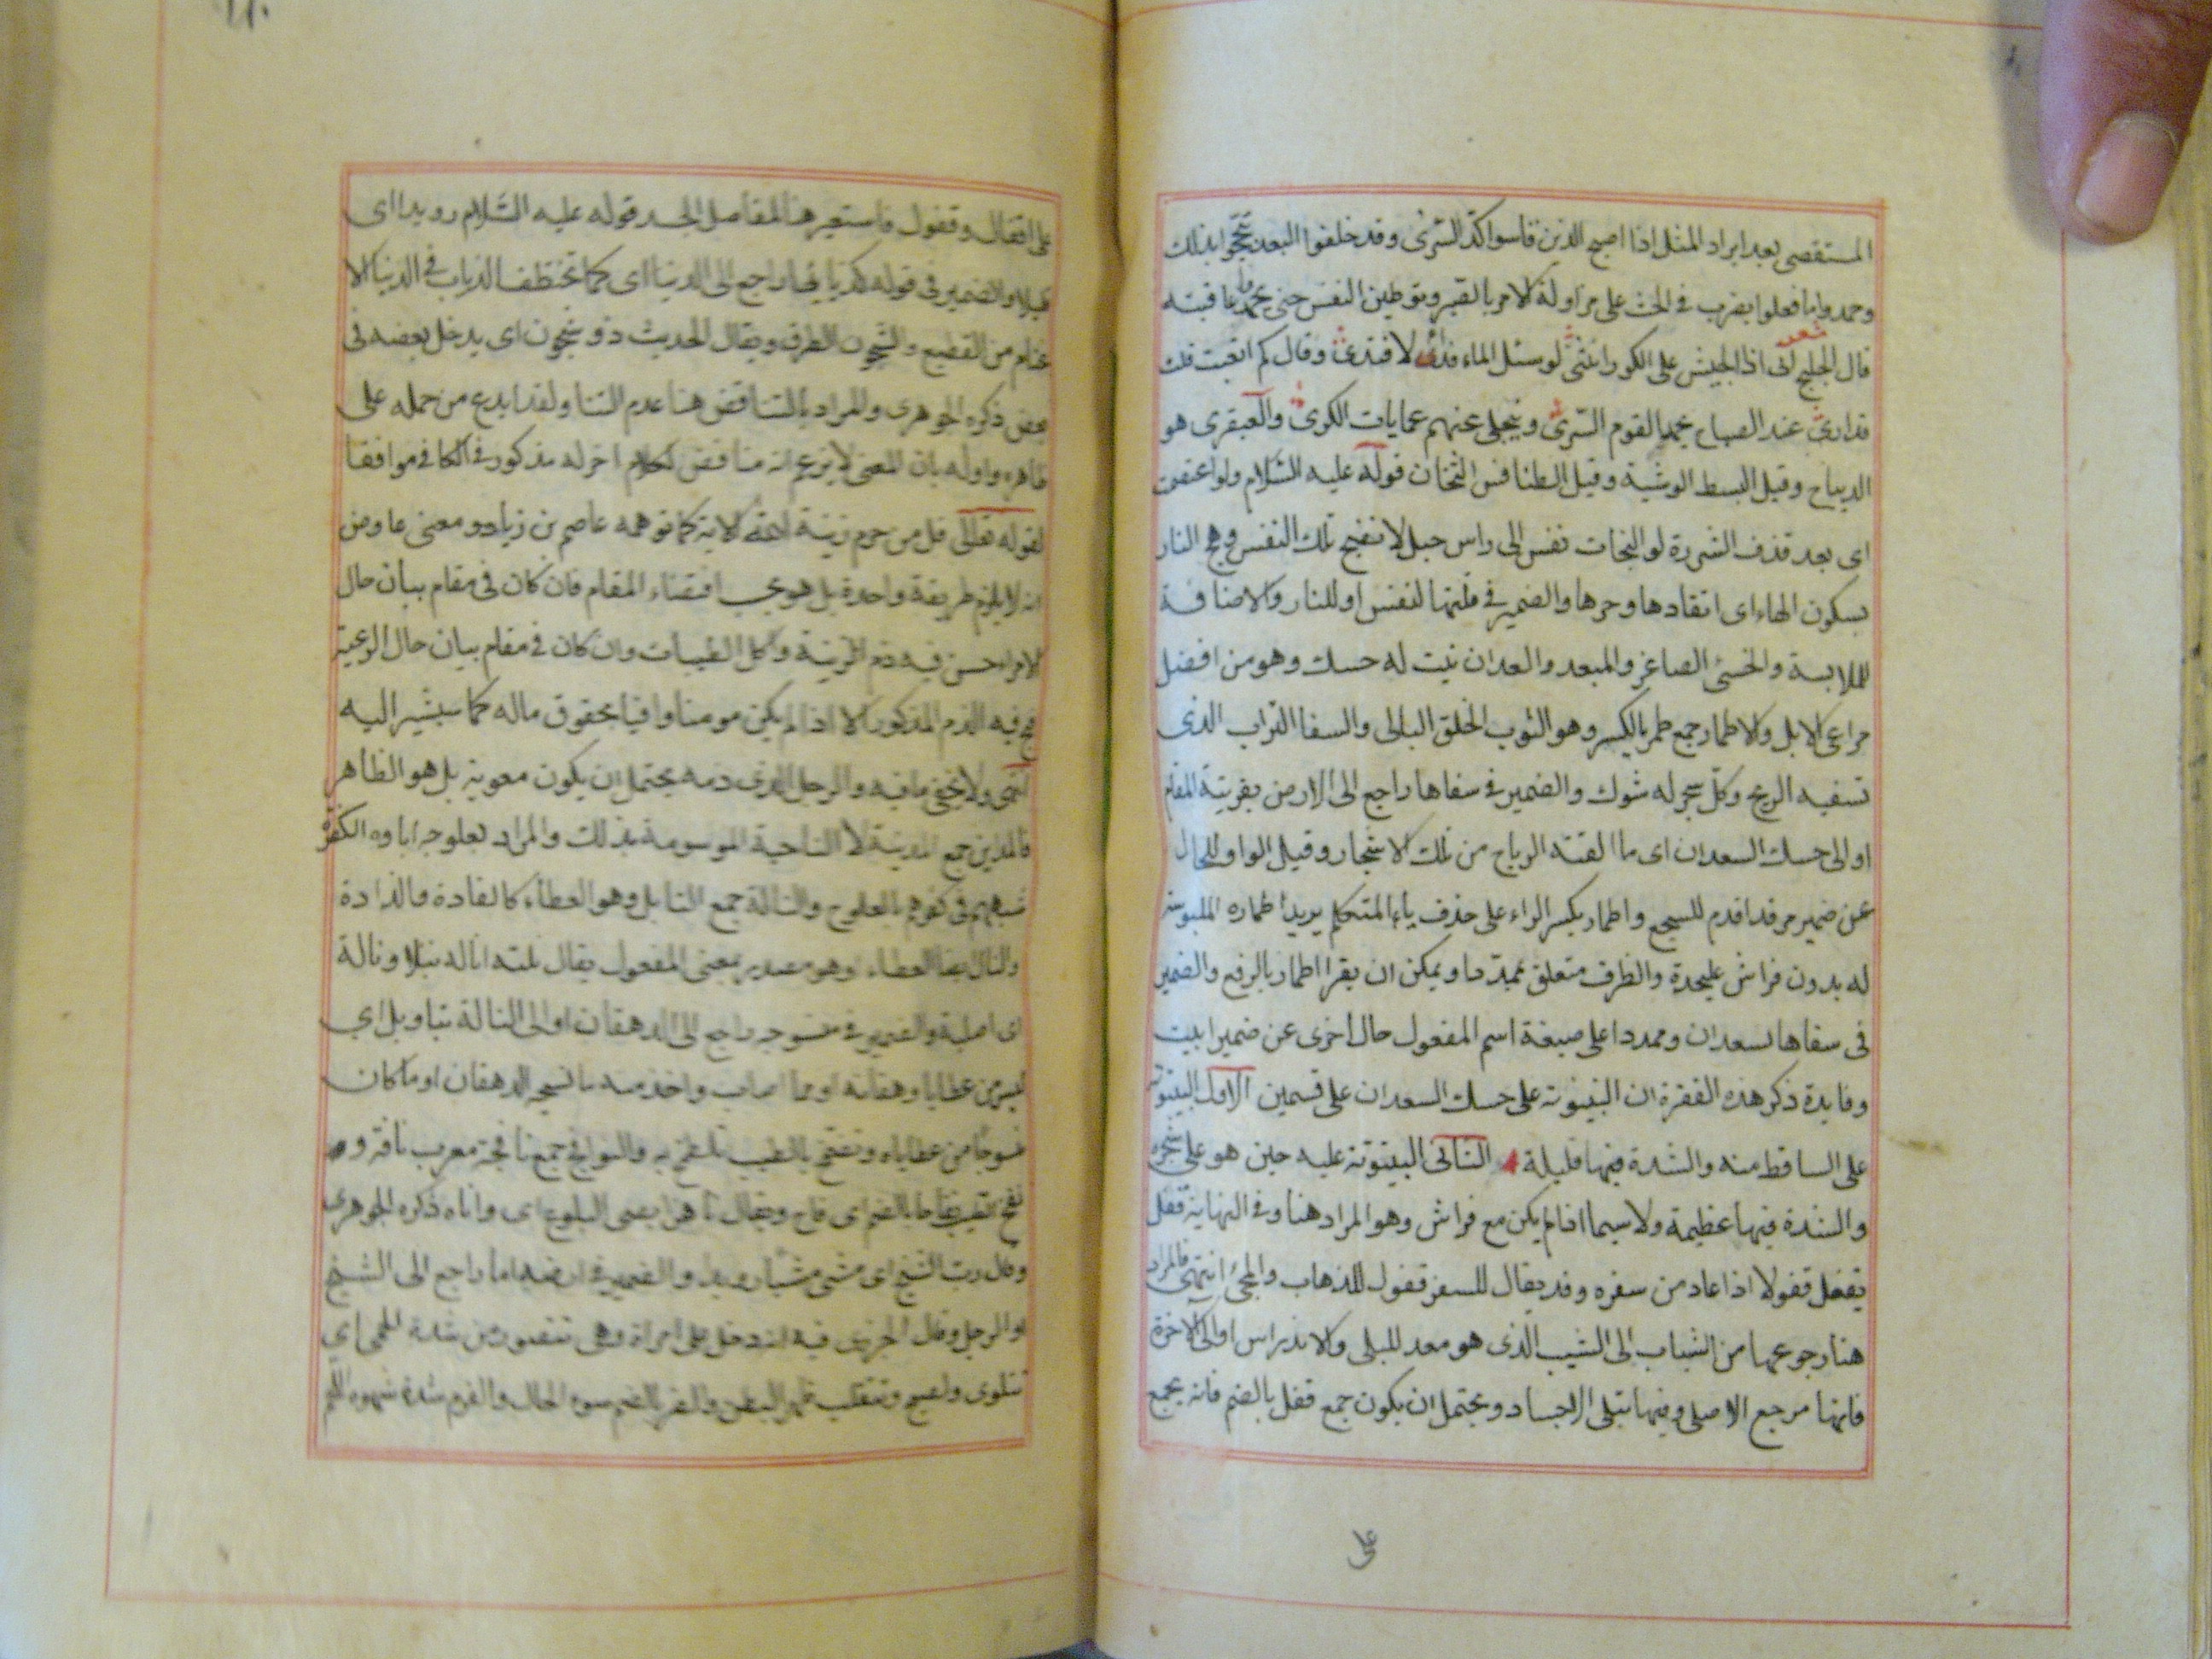 المستقصى بعد ايراد المثل اذا اصبح الذين قاسوا كدّ السّرى وقد خلفوا البعد تبجّحوا بذلك
وحمدوا ما فعلوا يضرب في الحث على مزاولة الامر بالصبر وتوطين النفس حتى يحمد عاقبته
شعر
قال الجليح انى اذا الجبس على الكور انثنى لو سئل الماء فدى لافتدى وقال كم اتعبت قلت
قد ارى عند الصباح يحمد القوم السّرى وينجلى عنهم عمايات الكرى والعبقرى هو
الديباج وقيل البسط الوشية وقيل الطنافس الثخان قوله عليه السّلام ولو اعتصمت
اى بعد قذف الشررة لو التجات نفس الى راس جبل لانضج تلك النفس وهج النار
بسكون الهاء اى اتقادها وحرها والضمير في قلتها للنفس او للنار والاضافة
للملابسة والخسئ الصاغر والمبعد والسعدان نبت له حسك وهو من افضل
مراعى الابل والاطمار جمع طمر بالكسر وهو الثوب الخلق البالى والسفا التراب الذى
تسفيه الريح وكلّ شجر له شوك والضمير في سفاها راجع الى الارض بقرينة المقام
او الى حسك السعدان اى ما القته الرياح من تلك الاشجار وقيل الواو للحال
عن ضمير مرقدا قدم للسجع واطمار بكسر الراء على حذف ياء المتكلم يريد اطماره الملبوسة
له بدون فراش عليحدة والظرف متعلق بممدّدا ويمكن ان يقرا اطمار بالرفع والضمير
فى سفاها لسعدان وممددا على صيغة اسم المفعول حال اخرى عن ضمير ابيت
وفايدة ذكر هذه الفقرة ان البيتوتة على حسك السعدان على قسمين الاول البيتوتة
على الساقط منه والشدة فيها قليلة الثانى البيتوتة عليه حين هو على شجره
والشدة فيها عظيمة ولا سيما اذا لم يكن مع فراش وهو المراد هنا وفي النهاية قفل
يقفل قفولا اذا عاد من سفره وقد يقال للسفر قفول للذهاب والمجئ انتهى فالمراد
هنا رجوعها من الشباب الى الشيب الذى هو معد للبلى والاندراس او الى الاخرة
فانها مرجع الاصلى وفيها تبلى الاجساد ويحتمل ان يكون جمع قفل بالضم فانه يجمع
على
على اقفال وقفول فاستعير هنا لمفاصل الجسد قوله عليه السّلام رويدا اى
قليلا والضمير في قوله راجع الى الدنيا اى كما الذياب في الدنيا الا
من القطيع والشجون الطرق ويقال الحديث ذو شجون اى يدخل بعضه فى
بعض ذكره الجوهرى والمراد بالتناقض هنا عدم التنا ولقد ابدع من حمله على
ظاهره واوله بان المعنى لا يزعم انه مناقض لكلام اخر له مذكور في الكافي موافقا
لقوله تعالى قل من حرم زينة الله الاية كما توهمه عاصم بن زياد ومعنى عاوض
انه لا يلزم طريقة واحدة بل هو بحسب اقتضاء المقام فان كان فى مقام بيان حال
الامراء حسن فيه ذم الزينة واكل الطيبات وان كان في مقام بيان حال الرعية
قبح فيه الذم المذكور الا اذا لم يكن مومنا وافيا بحقوق ماله كما سيشير اليه
انتهى ولا يخفى ما فيه والرجل الذى ذمه يحتمل ان يكون معوية بل هو الظاهر
فالمداين جمع المدينة لا الناحية الموسومة بذلك والمراد بعلوجه اباوه الكفرة
شبههم في كفرهم بالعلوج والنالة جمع النايل وهو العطاء كالقادة والذادة
والنال ايضا العطاء وهو مصدر بمعنى المفعول يقال نلته اناله نيلا ونالة
اى اصابة والضمير في منسوجه راجع الى الدهقان او الى النالة بتاويل اى
عطايا دهقانه او مما اصاب واخذ منه ما نسجه الدهقان او ما كان
منسوجا من عطاياه وتضمخ بالطيب تلطخ به والنوافج جمع نافجة معرب نافة و
بالضم اى فاح ويقال بمعنى البلوغ اى واناه ذكره الجوهرى
وقال دب الشيخ اى مشى مشيا رويدا والضمير في راجع الى الشيخ
او الرجل وقال الجزرى فيه انه دخل على امراة وهى تتضور من شدة الحمى اى
تتلوى وتضج وتتقلب ظهرا لبطن والضر بالضم سوء الحال والقرم شدة شهوة اللحم